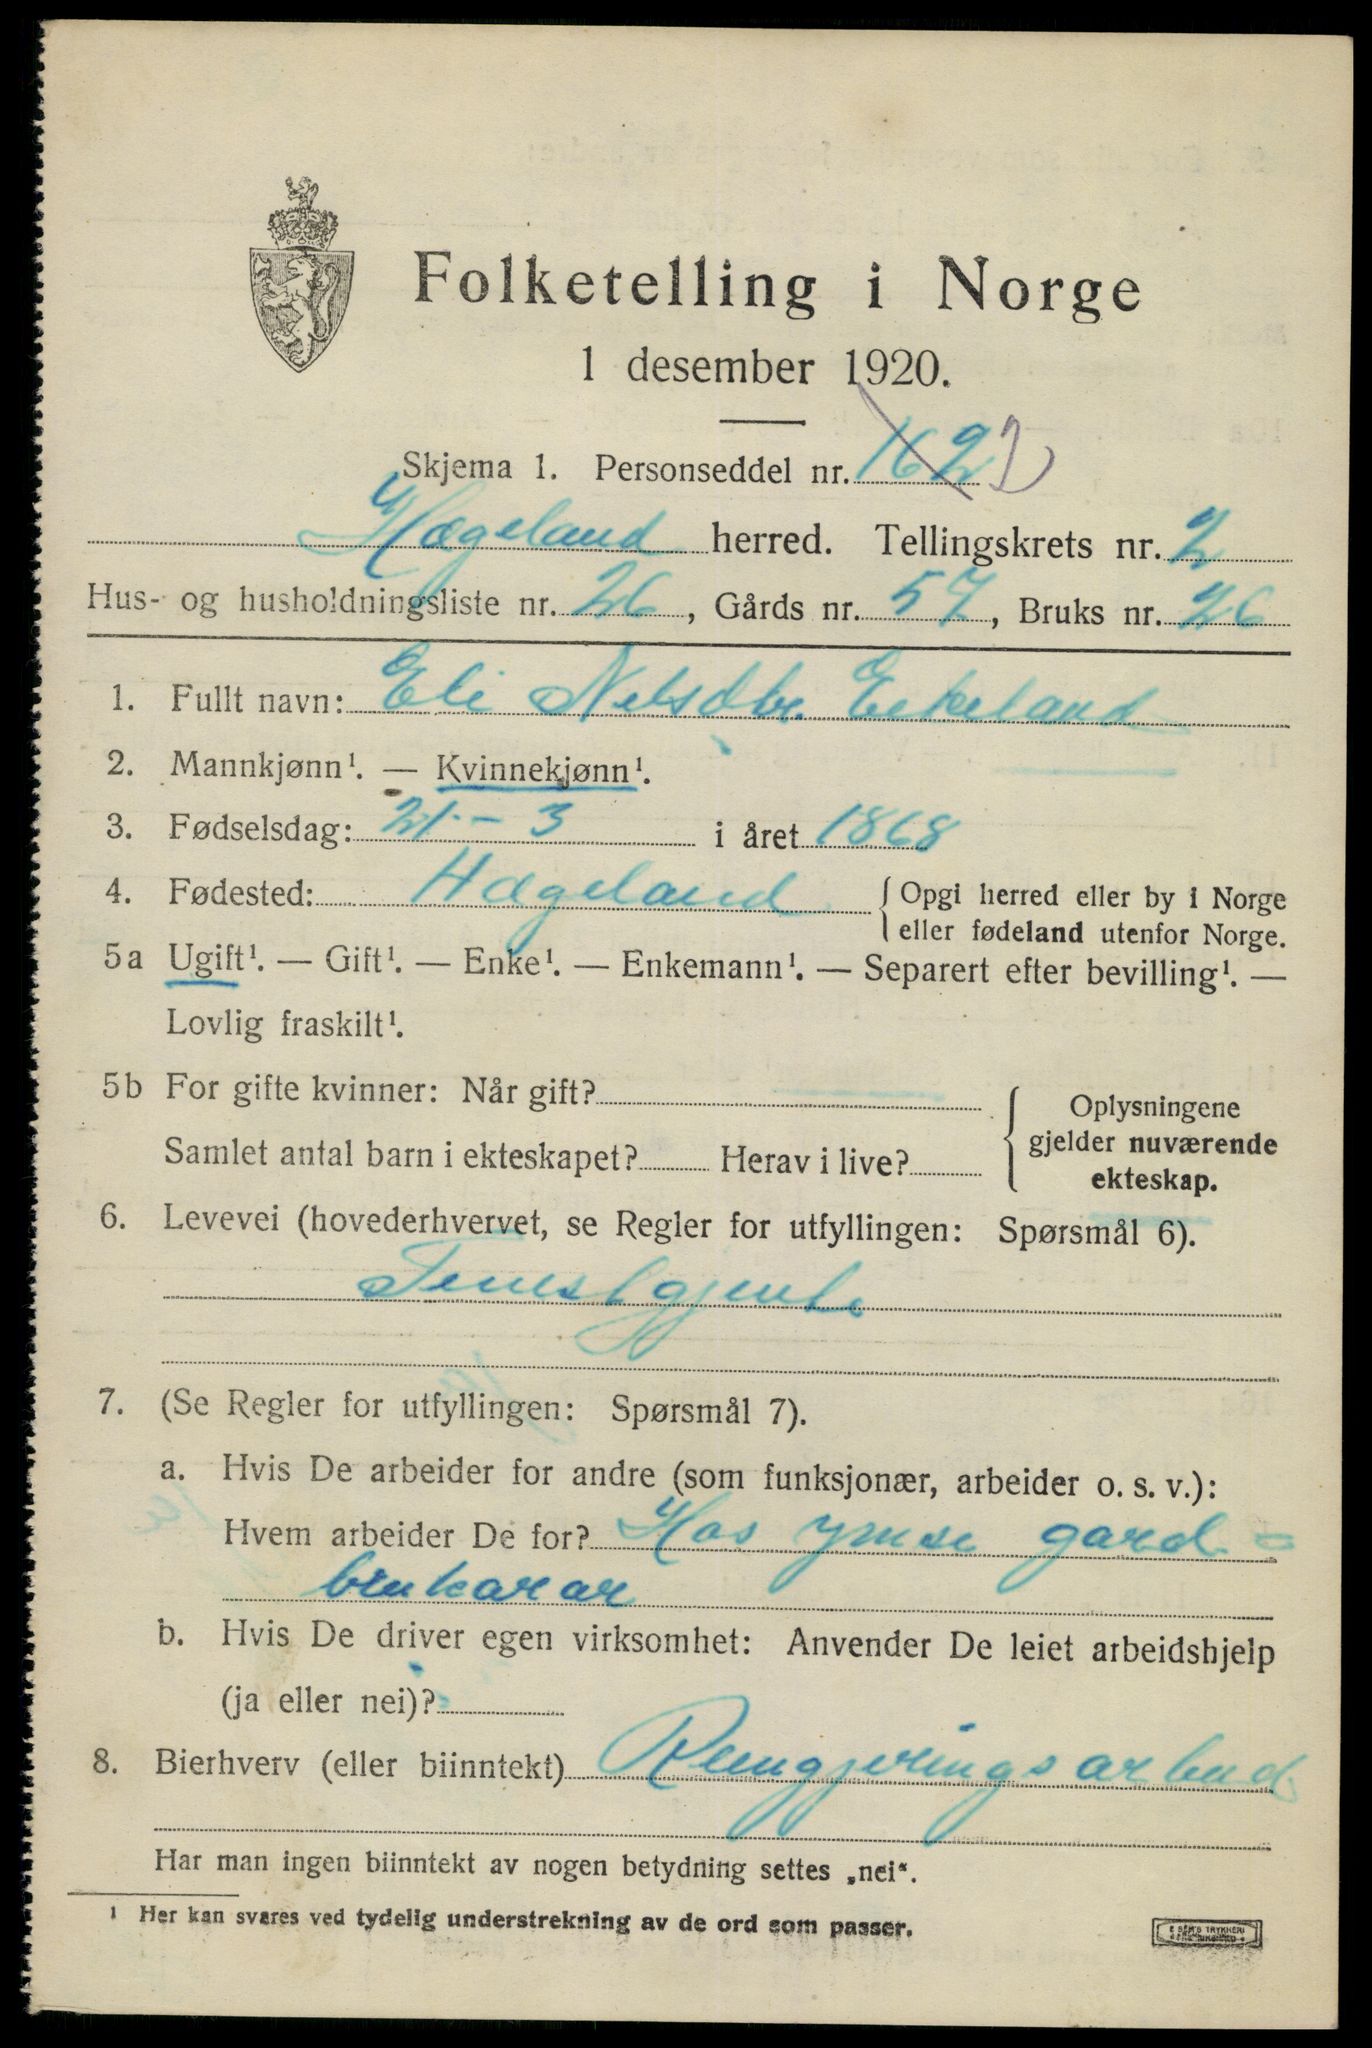 Folketelling i Norge
1 desember 1920.
Skjema 1. Personseddel nr. 162
Hægeland herred. Tellingskrets nr. 2
Hus- og husholdningsliste nr. 26, Gårds nr. 57, Bruks nr. 26
1. Fullt navn: Eli Nelsdtr. Eikeland
2. Mannkjønn¹. — Kvinnekjønn¹.
3. Fødselsdag: 21. - 3 i året 1868
4. Fødested: Hægeland { Opgi herred eller by i Norge
eller fødeland utenfor Norge.
5a Ugift¹. — Gift¹. — Enke¹. — Enkemann¹. — Separert efter bevilling¹. —
Lovlig fraskilt¹.
5b For gifte kvinner: Når gift?
Samlet antal barn i ekteskapet? Herav i live?
Oplysningene
gjelder nuværende
ekteskap.
6. Levevei (hovederhvervet, se Regler for utfyllingen: Spørsmål 6).
Tenestgjente
7. (Se Regler for utfyllingen: Spørsmål 7).
a. Hvis De arbeider for andre (som funksjonær, arbeider o. s. v.):
Hvem arbeider De for? Hos ymse gard=
brukarar
b. Hvis De driver egen virksomhet: Anvender De leiet arbeidshjelp
(ja eller nei)?
8. Bierhverv (eller biinntekt) Reingjeringsarbeid
Har man ingen biinntekt av nogen betydning settes „nei“.
¹ Her kan svares ved tydelig understrekning av de ord som passer.